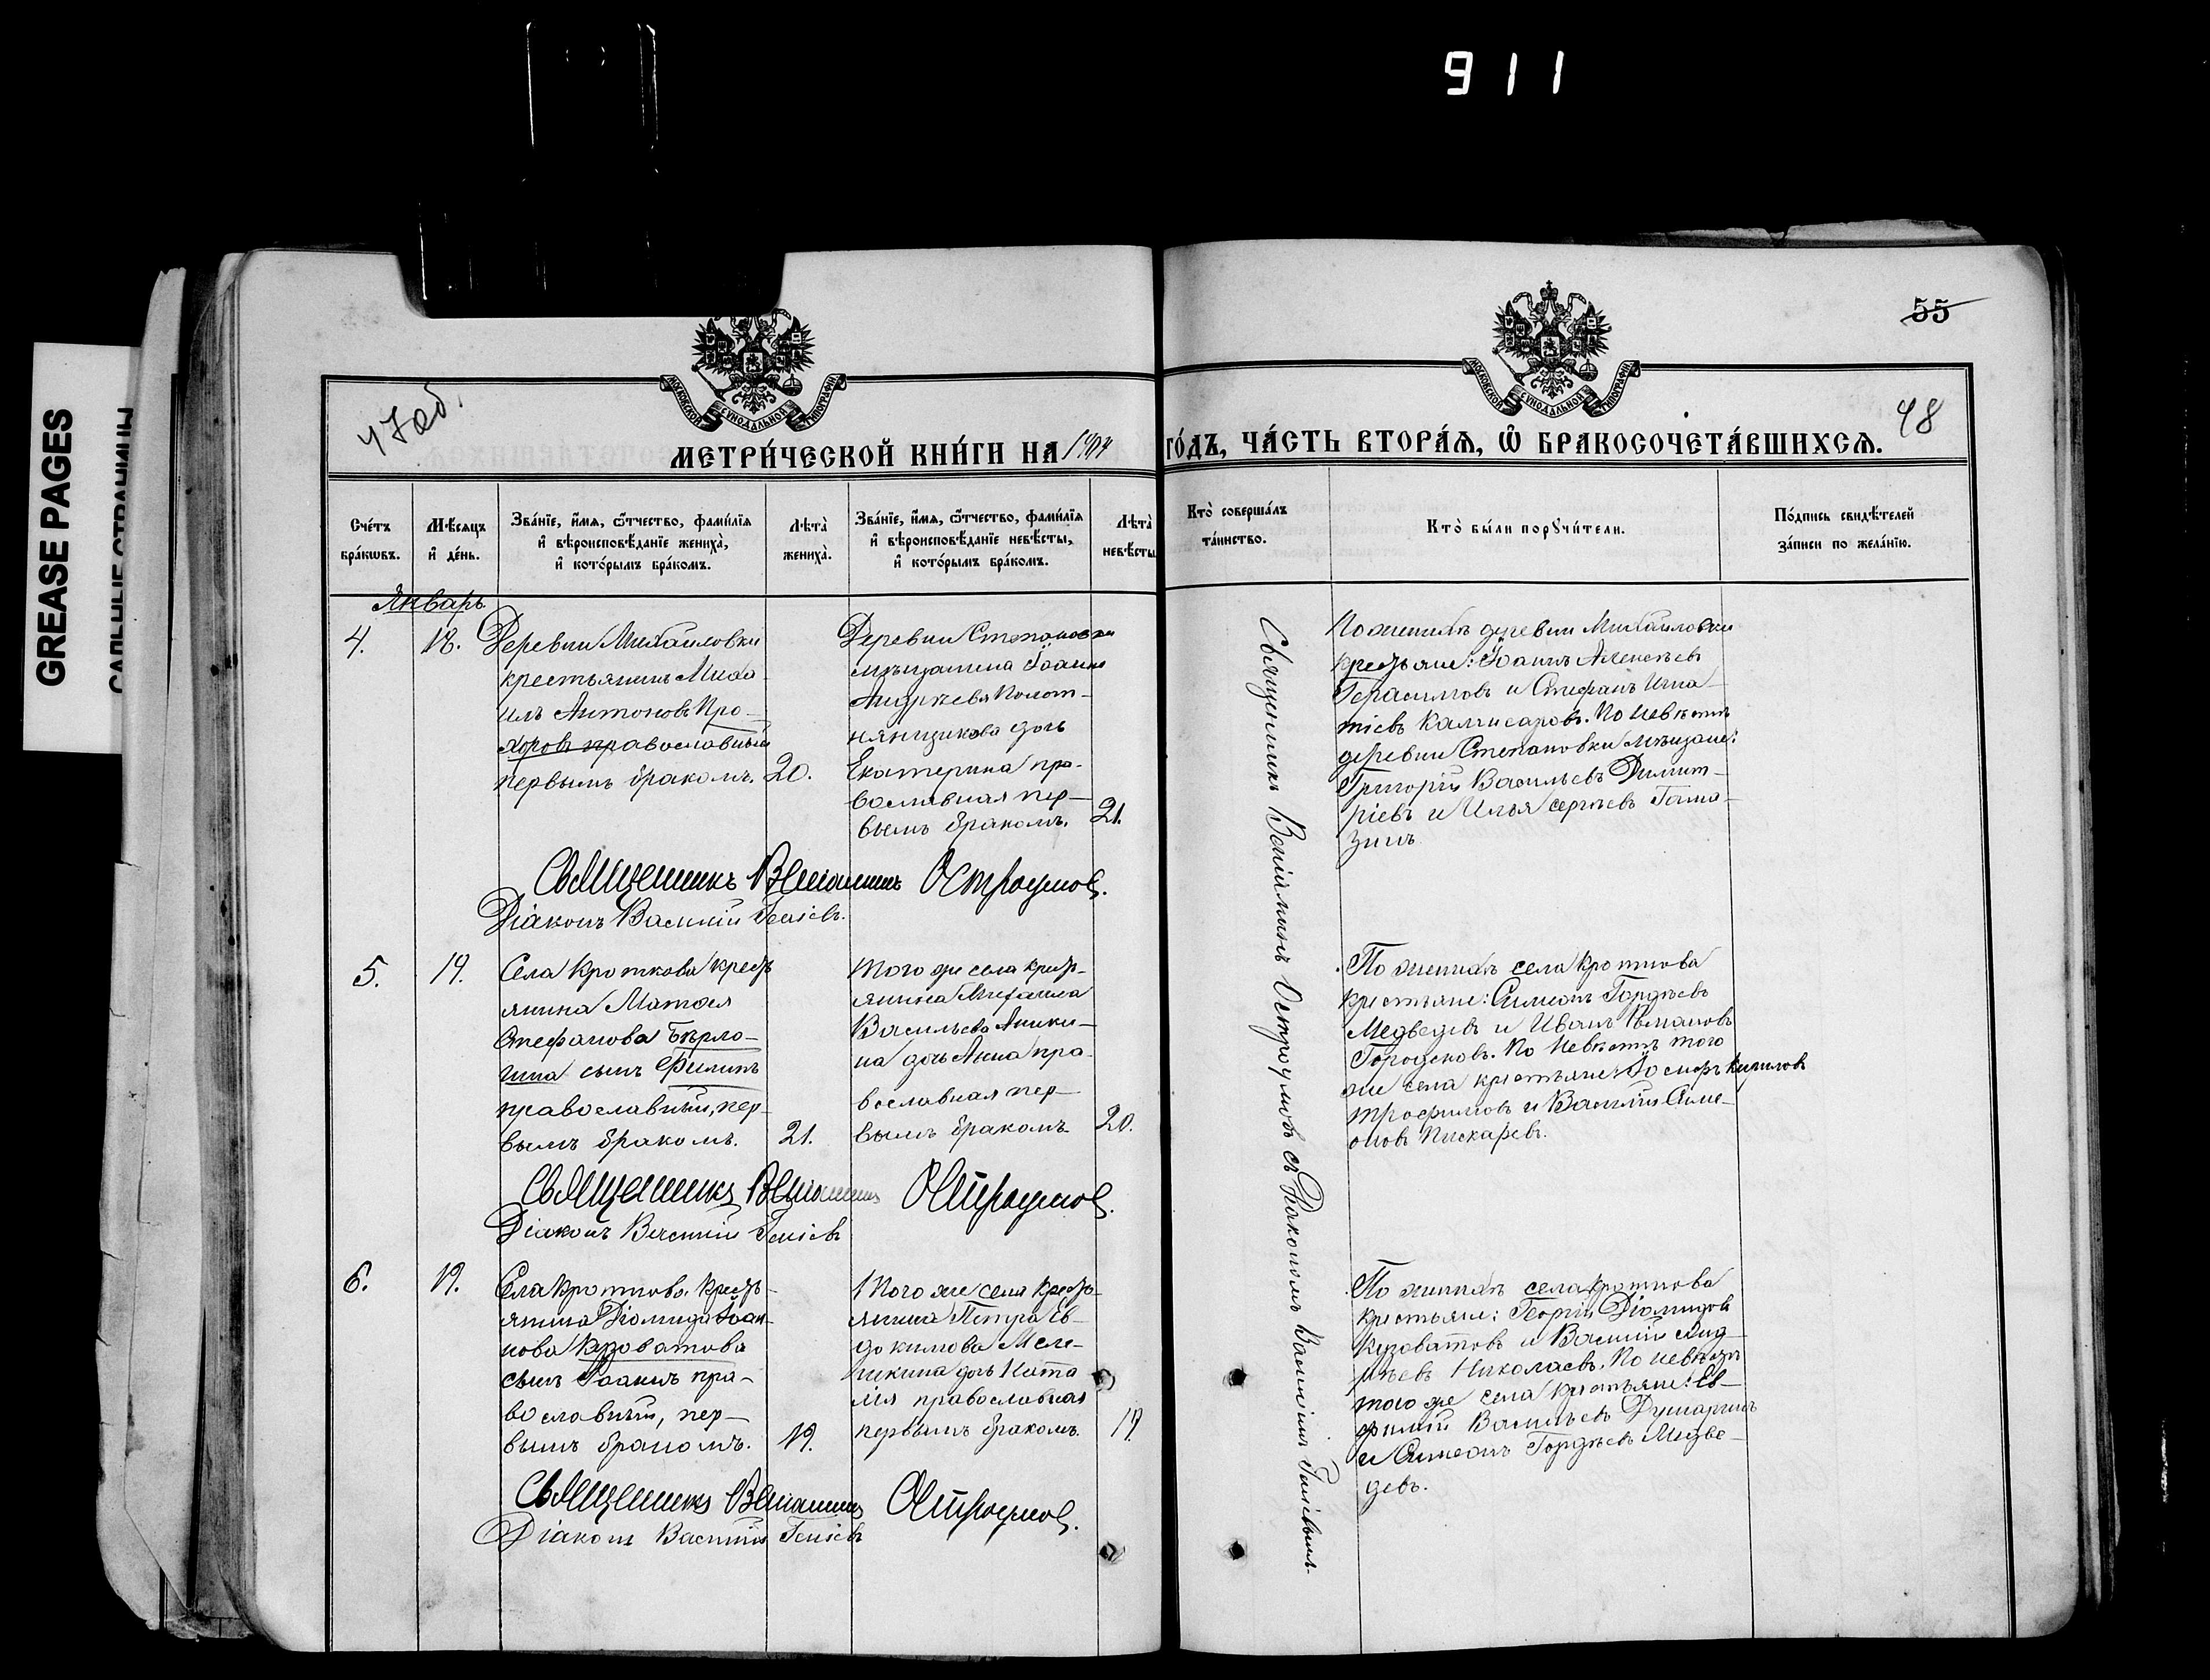 911
GREASE PAGES
55
47 об.
48
МОСКОВСКОЙ СѴНОДАЛЬНОЙ ТИПОГРАФІИ
МОСКОВСКОЙ СѴНОДАЛЬНОЙ ТИПОГРАФІИ
МЕТРИ́ЧЕСКОЙ КНИ́ГИ НА
ГО́ДЪ, ЧА́СТЬ ВТОРА́Я, Ѡ҆ БРАКОСОЧЕТА́ВШИХСЯ.
Счéтъ бра́кѡвъ.
Мѣ́сяцъ и҆ де́нь.
Зва́нїе, и҆́мя, ѻ҆́тчество, фами́лїя и҆ вѣроисповѣ́данїе жениха̀, и҆ кото́рымъ бра́комъ.
Лѣта̀ жениха̀.
Зва́нїе, и҆́мя, ѻ҆́тчество, фами́лїя и҆ вѣроисповѣ́данїе невѣ́сты, и҆ кото́рымъ бра́комъ.
Лѣта̀ невѣ́сты
Кто̀ соверша́лъ та́инство.
Кто̀ бы́ли порꙋчи́тели.
По́дпись свидѣ́телей за́писи по жела́нїю.
Январь
4.
18.
Деревни Михайловки
крестьянинъ Миха-
илъ Антоновъ Про-
хоровъ православный
первымъ бракомъ.
20.
Деревни Степановки
мѣщанина Іоанна
Андреева Полот-
нянщикова дочь
Екатерина пра-
вославная пер-
вымъ бракомъ.
21.
Священникъ Веніаминъ Остроумовъ съ Діакономъ Василіемъ
По женихѣ деревни Михайловки
крестьяне: Іоаннъ Алексѣевъ
Герасимовъ и Стефанъ Игна-
тіевъ По невѣстѣ
деревни Степановки мѣщане:
Григорій Васильевъ Димит-
ріевъ и Илья Сергѣевъ
зинъ.
Священникъ Веніаминъ Остроумов.
Діаконъ Василій
5.
19.
Села Кроткова кресть
янина Матѳея
Стефанова Бѣрло-
гина сынъ Филипъ
православный, пер-
вымъ бракомъ.
21.
Того же села кресть-
янина Михаила
Васильева Аники-
на дочь Анна пра-
вославная пер-
вымъ бракомъ
20.
По женихѣ села Кроткова
крестьяне: Симеонъ Гордѣевъ
Медведевъ и Иванъ Романовъ
Городсковъ. По невѣстѣ того
же села крестьяне: Іосифъ Кириловъ
Трофимовъ и Василій Симе-
оновъ Пискаревъ.
Священникъ Веніаминъ Остроумов.
Діаконъ Василій
6.
19.
Села Кроткова, кресть-
янина Діомида Іоан-
нова Кузоватова
сынъ Іоаннъ пра-
вославный, пер-
вымъ бракомъ.
19.
Того же села кресть-
янина Петра Ев-
докимова Меле-
шкина дочь Ната
лія православная
первымъ бракомъ.
17.
По женихѣ села Кроткова
крестьяне: Георгій Діомидовъ
Кузоватовъ и Василій Анд-
реевъ Николаевъ. По невѣстѣ
того же села крестьяне: Ев-
фимій Васильевъ
и Симеонъ Гордѣевъ Медве-
девъ.
Священникъ Веніаминъ Остроумов.
Діаконъ Василій